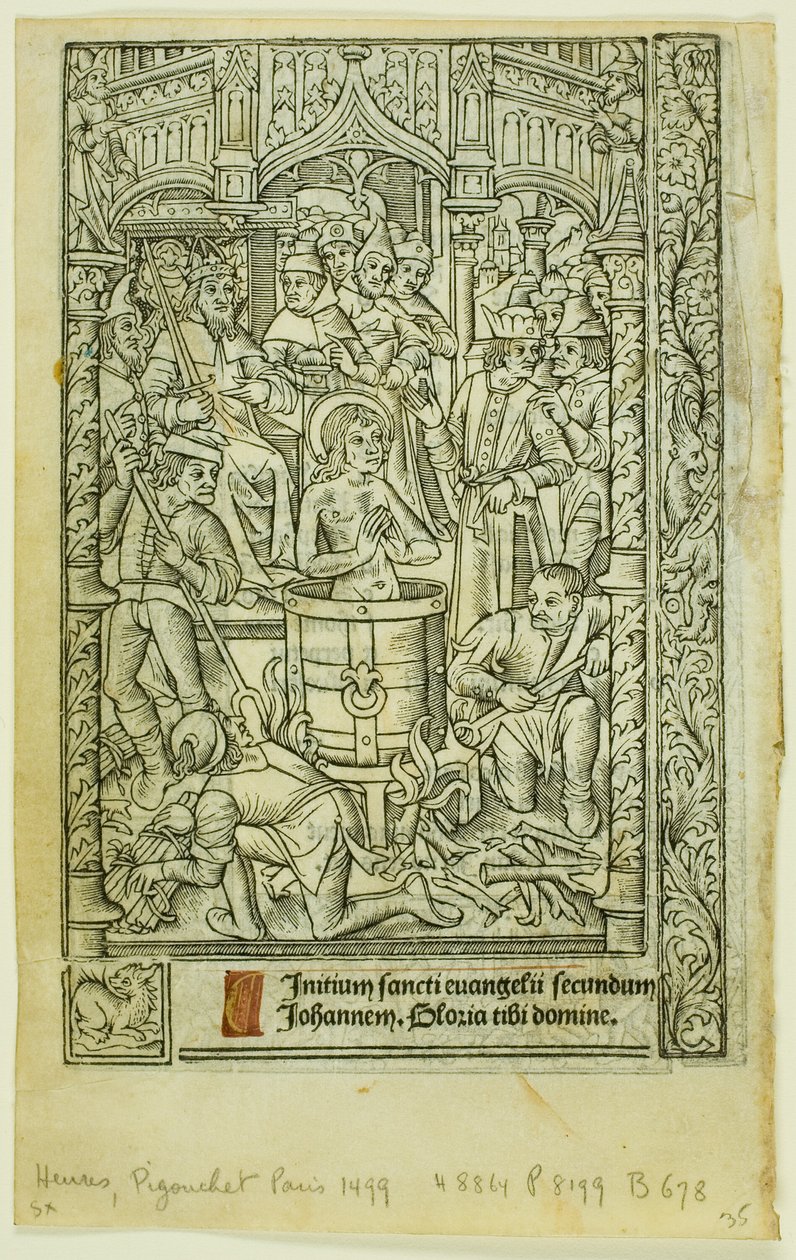 Initium sancti euangelii secundum
Johannem. Gloria tibi domine.
Heures, Pigouchet Paris 1499 H 8864 P 8199 B 678
sx
35